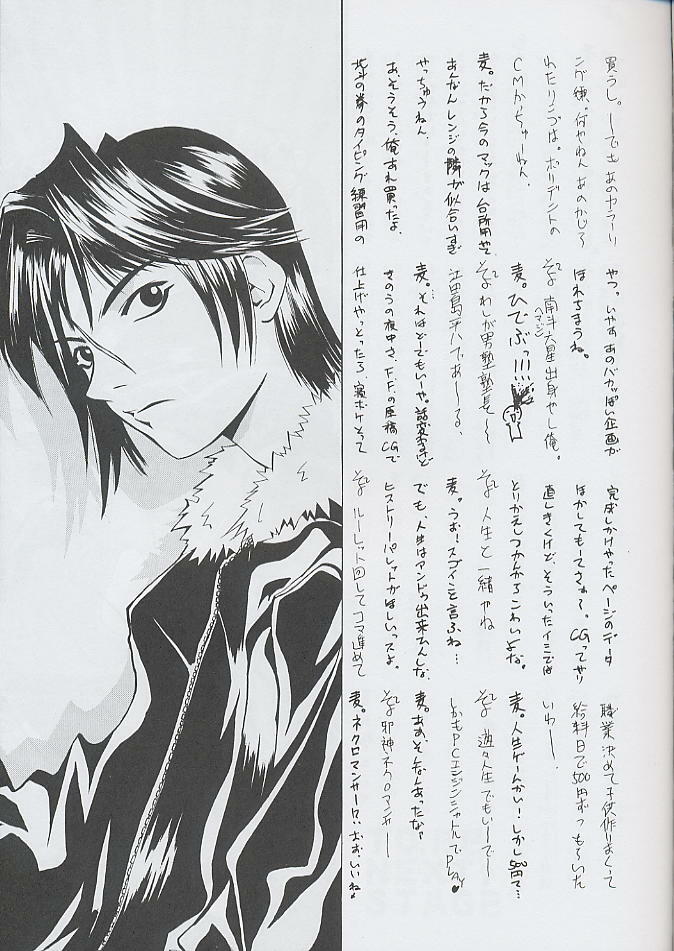 買うし。—でも あのカラーリ
ング 嫌。何やねん あのかじら
れたリンゴは。ポリデントの
CMかっちゅーねん。
麦。だから今のマックは 台所用やて
あんなんレンジの隣が似合いすぎ
やっちゅうねん。
あ、そうそう、俺あれ買ったよ、
北斗の拳のタイピング練習用の
やつ。いやすあのバカっぽい企画が
ほれちまうね。
そよ 南斗六星出身やし俺。
ヘマジン
麦。ひでぶっ!!!
そよ わしが男塾塾長〜
江田島平八であ〜る、
麦。それはどーでもいーや。話変るけど
きのうの夜中さ、F.F.の原稿CGで
仕上げやっとったら、寝ボケとって
完成しかけやったページのデータ
ほかしてもーてさぁ〜。CGってやり
直しきくけど、そういったイミでは
とりかえしつかんからこわいよな。
そよ 人生と一緒やね
麦。うお!スゴイこと言ふね…
でも、人生はアンドゥ出来へんしな、
ヒストリーパレットがほしいっスよ。
そよ ルーレット回してコマ進めて
職業決めて子供作りまくって
給料日で500円ずつもらいた
いわー。
麦。人生ゲームかい!しかし500円て…
そよ 遊々人生でもいーでー
しかもPCエンジンシャトルでplay♥
麦。あぁそんなんあったなぁ
そよ 邪神ネクロマンサー
麦。ネクロマンサー!?、おお、いいね♪